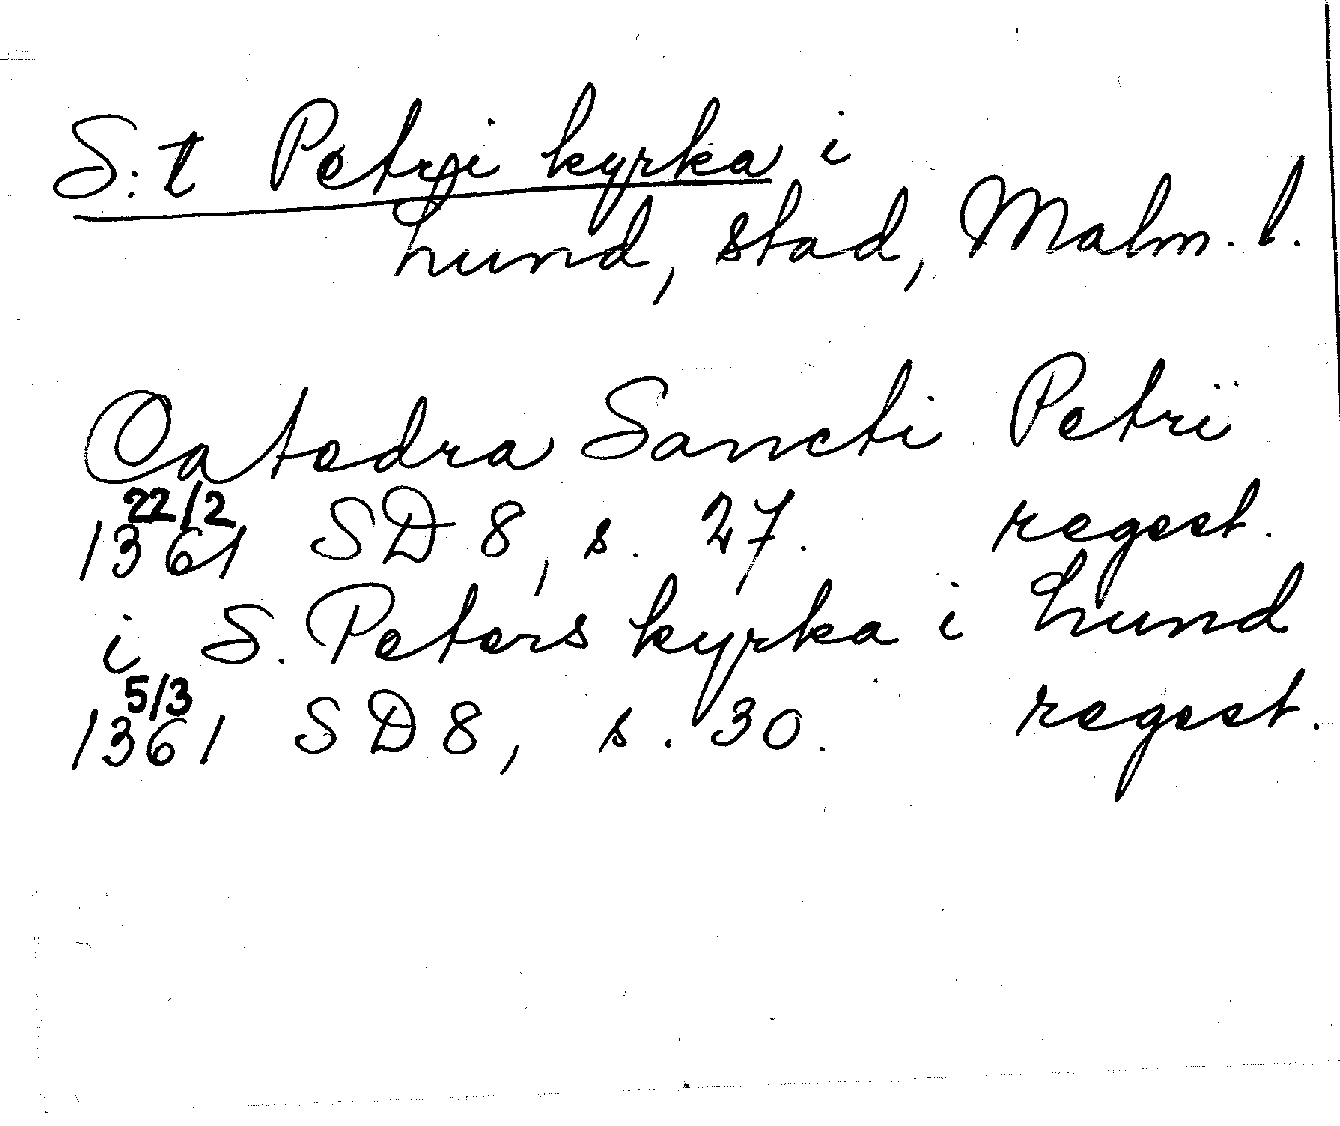 S:t Petri kyrka i
Lund, stad, Malm. l.
Catedra Sancti Petri
22/2
1361 SD 8, s. 27. regest.
i S. Peters kyrka i Lund
5/3
1361 SD 8, s. 30. regest.